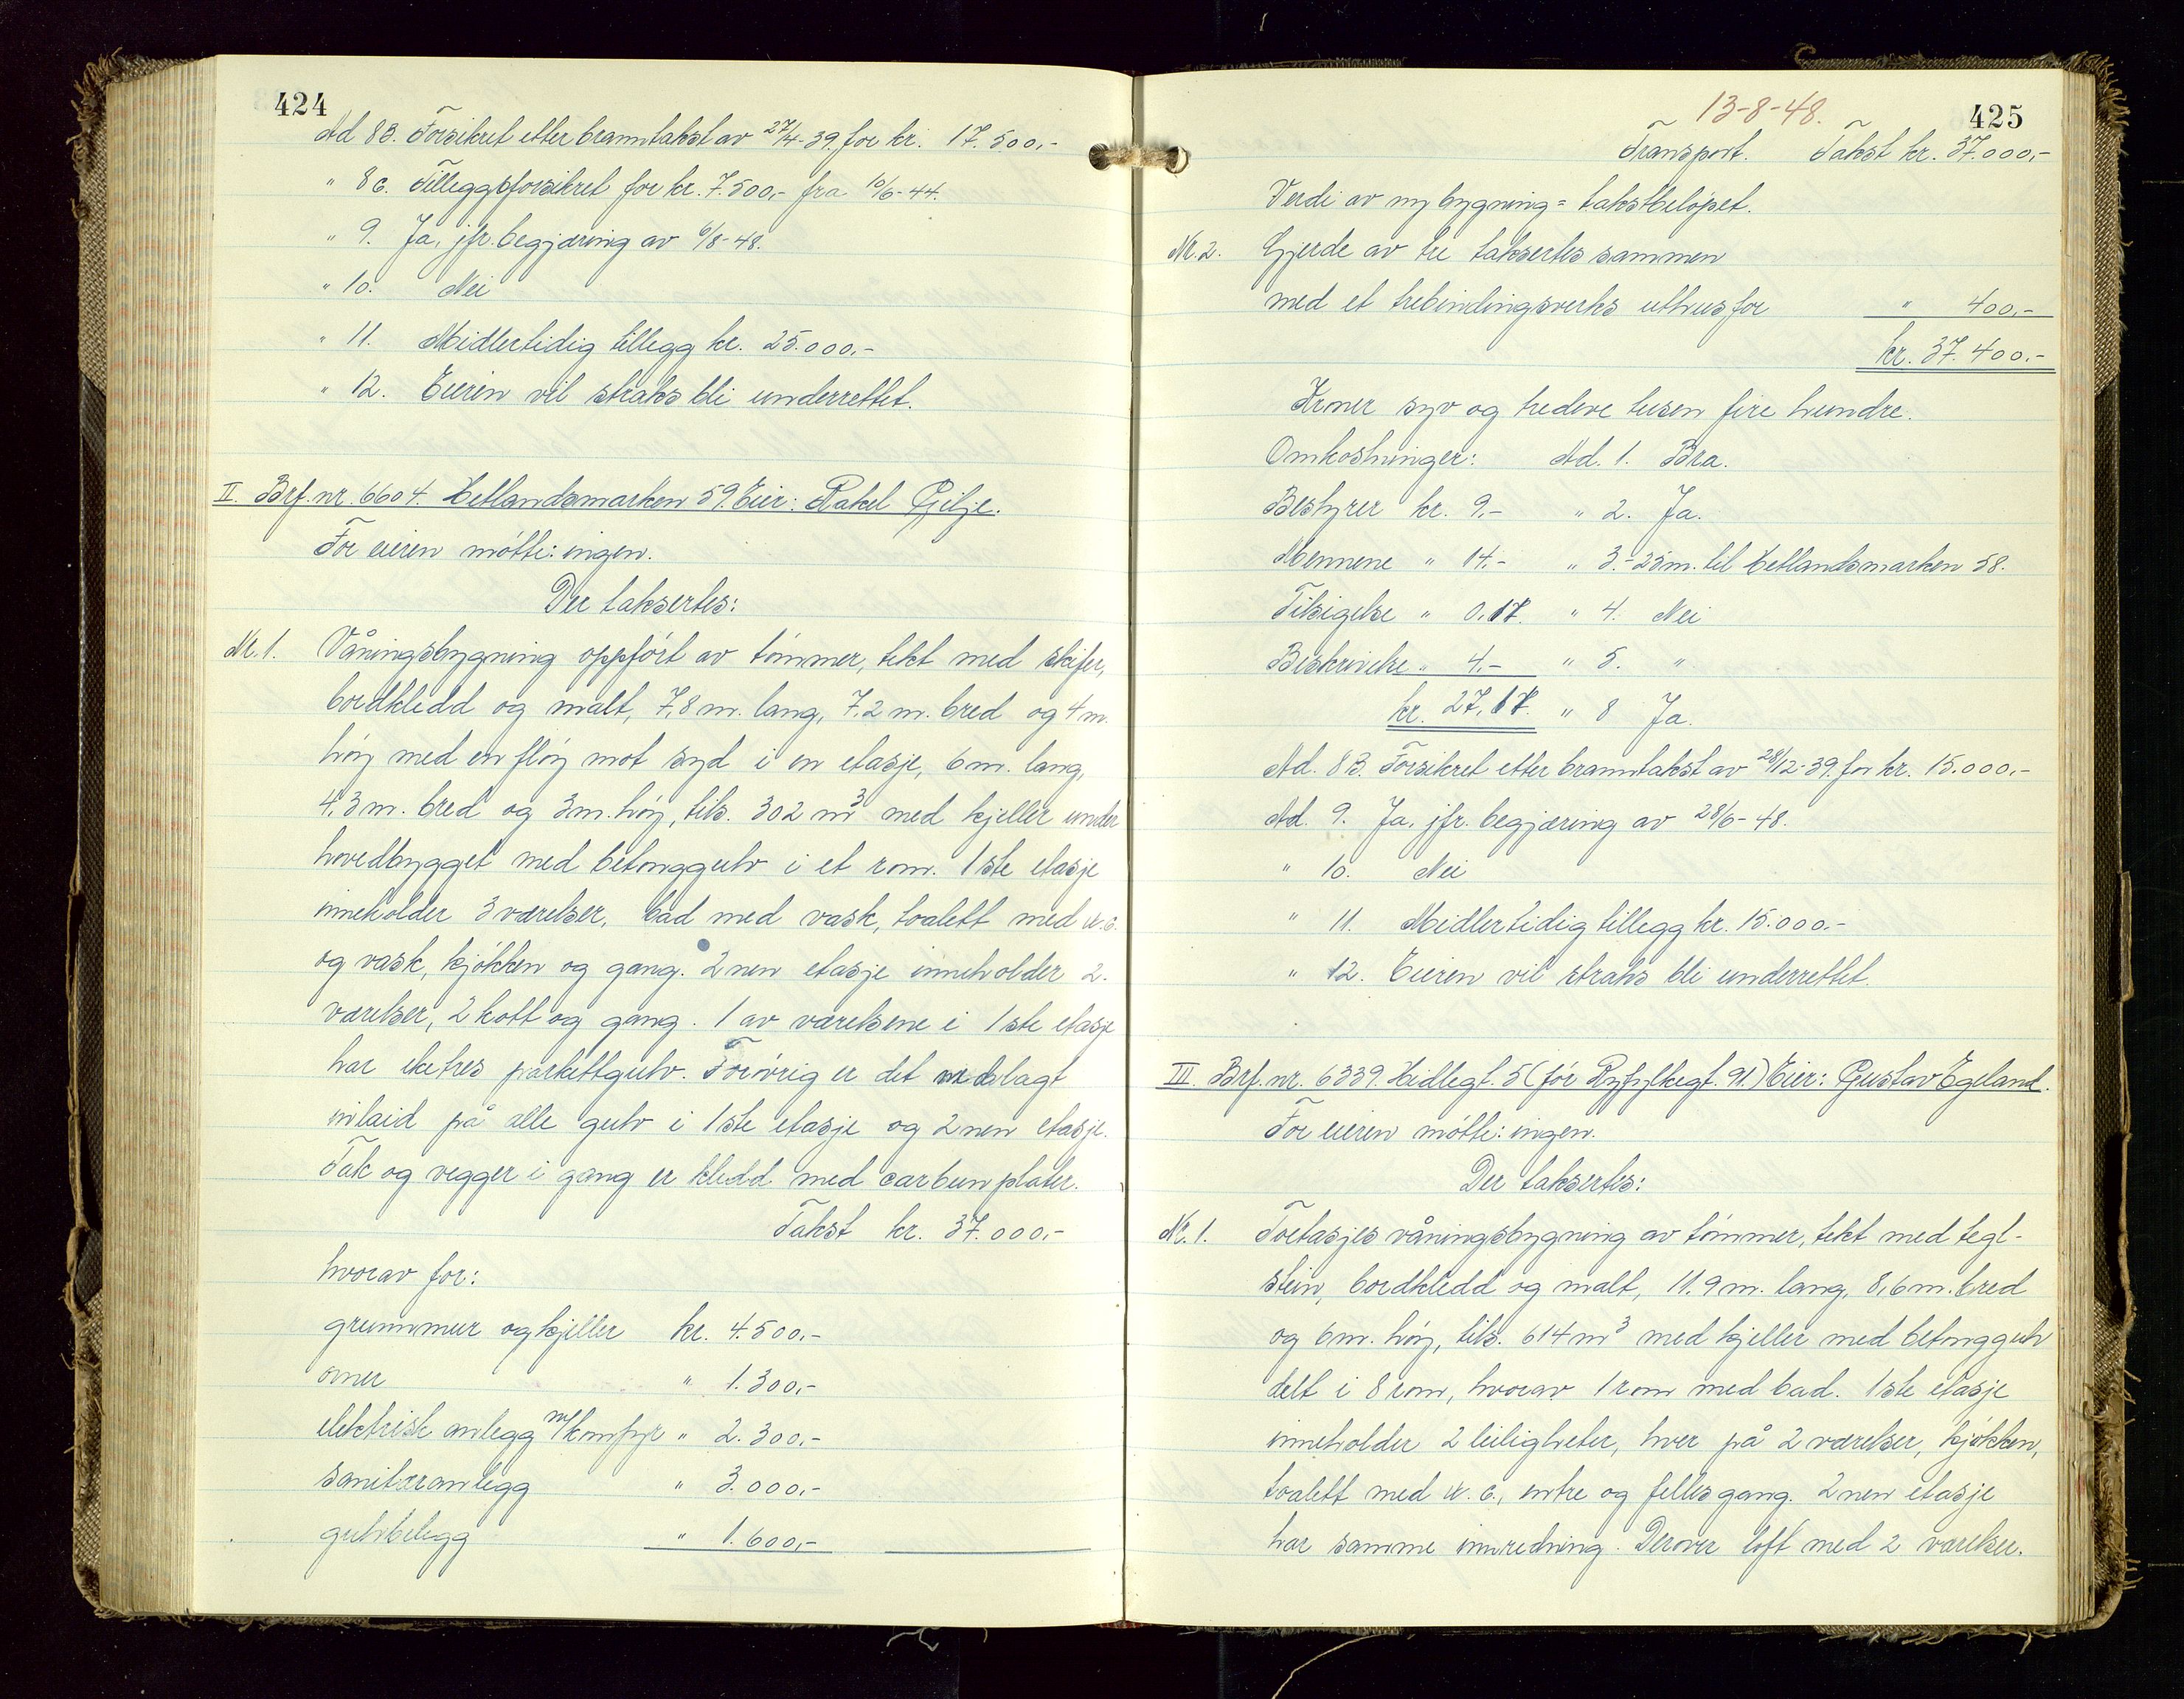 424
Ad 8B. Forsikret etter branntakst av 27/4-39. for kr. 17.500,-
" 8c. Tilleggsforsikret for kr. 7.500,- fra 10/6-44.
" 9. Ja, jfr. begjæring av 6/8-48.
" 10. Nei
" 11. Midlertidig tillegg kr. 25.000,-
" 12. Eieren vil straks bli underrettet.
II. Brf. nr. 6604. Hetlandsmarken 59. Eier: Rakel Gilje.
For eieren møtte: ingen.
Der taksertes:
Nr. 1. Våningsbygning oppført av tømmer, tekt med skifer,
bordkledd og malt, 7,8 m. lang, 7,2 m. bred og 4 m.
høy med en fløy mot syd i en etasje, 6 m. lang,
4,3 m. bred og 3 m. høy, tils. 302 m³ med kjeller under
hovedbygget med betonggulv i et rom. 1ste etasje
inneholder 3 værelser, bad med vask, toalett med w.c.
og vask, kjøkken og gang. 2nen etasje inneholder 2.
værelser, 2 kott og gang. 1 av værelsene i 1ste etasje
har eketres parkettgulv. Forøvrig er det nedlagt
inlaid på alle gulv i 1ste etasje og 2nen etasje.
Tak og vegger i gang er kledd med carbunplater.
Takst kr. 37.000,-
hvorav for:
grunnmur og kjeller kr. 4.500,-
ovner " 1.300,-
elektrisk anlegg m/komfyr " 2.300,-
sanitæranlegg " 3.000,-
gulvbelegg " 1.600,-
13-8-48.
425
Transport. Takst kr. 37.000,-
Verdi av ny bygning = takstbeløpet.
Nr. 2. Gjerde av tre taksertes sammen
med et trebindingsverks uthus for " 400,-
kr. 37.400,-
Kroner syv og tredve tusen fire hundre.
Omkostninger: Ad. 1. Bra.
Bestyrer kr. 9,- " 2. Ja.
Mennene " 14,- " 3.- 25 m. til Hetlandsmarken 58.
Tilsigelse " 0.17. " 4. Nei
Beskrivelse " 4,- " 5. "
kr. 27,17. " 8 Ja.
Ad. 8B. Forsikret etter branntakst av 28/12-39. for kr. 15.000,-
Ad. 9. Ja, jfr. begjæring av 28/6-48.
" 10. Nei
" 11. Midlertidig tillegg kr. 15.000,-
" 12. Eieren vil straks bli underrettet.
III. Brf. nr. 6339. Hidlegt. 5 (før Ryfylkegt. 91.) Eier: Gustav Egeland.
For eieren møtte: ingen.
Der taksertes:
Nr. 1. Toetasjes våningsbygning av tømmer, tekt med tegl-
stein, bordkledd og malt, 11,9 m. lang, 8,6 m. bred
og 6 m. høy, tils. 614 m³ med kjeller med betonggulv
delt i 8 rom, hvorav 1 rom med bad. 1ste etasje
inneholder 2 leiligheter, hver på 2 værelser, kjøkken,
toalett med w.c., entre og felles gang. 2nen etasje
har samme innredning. Derover loft med 2 værelser.